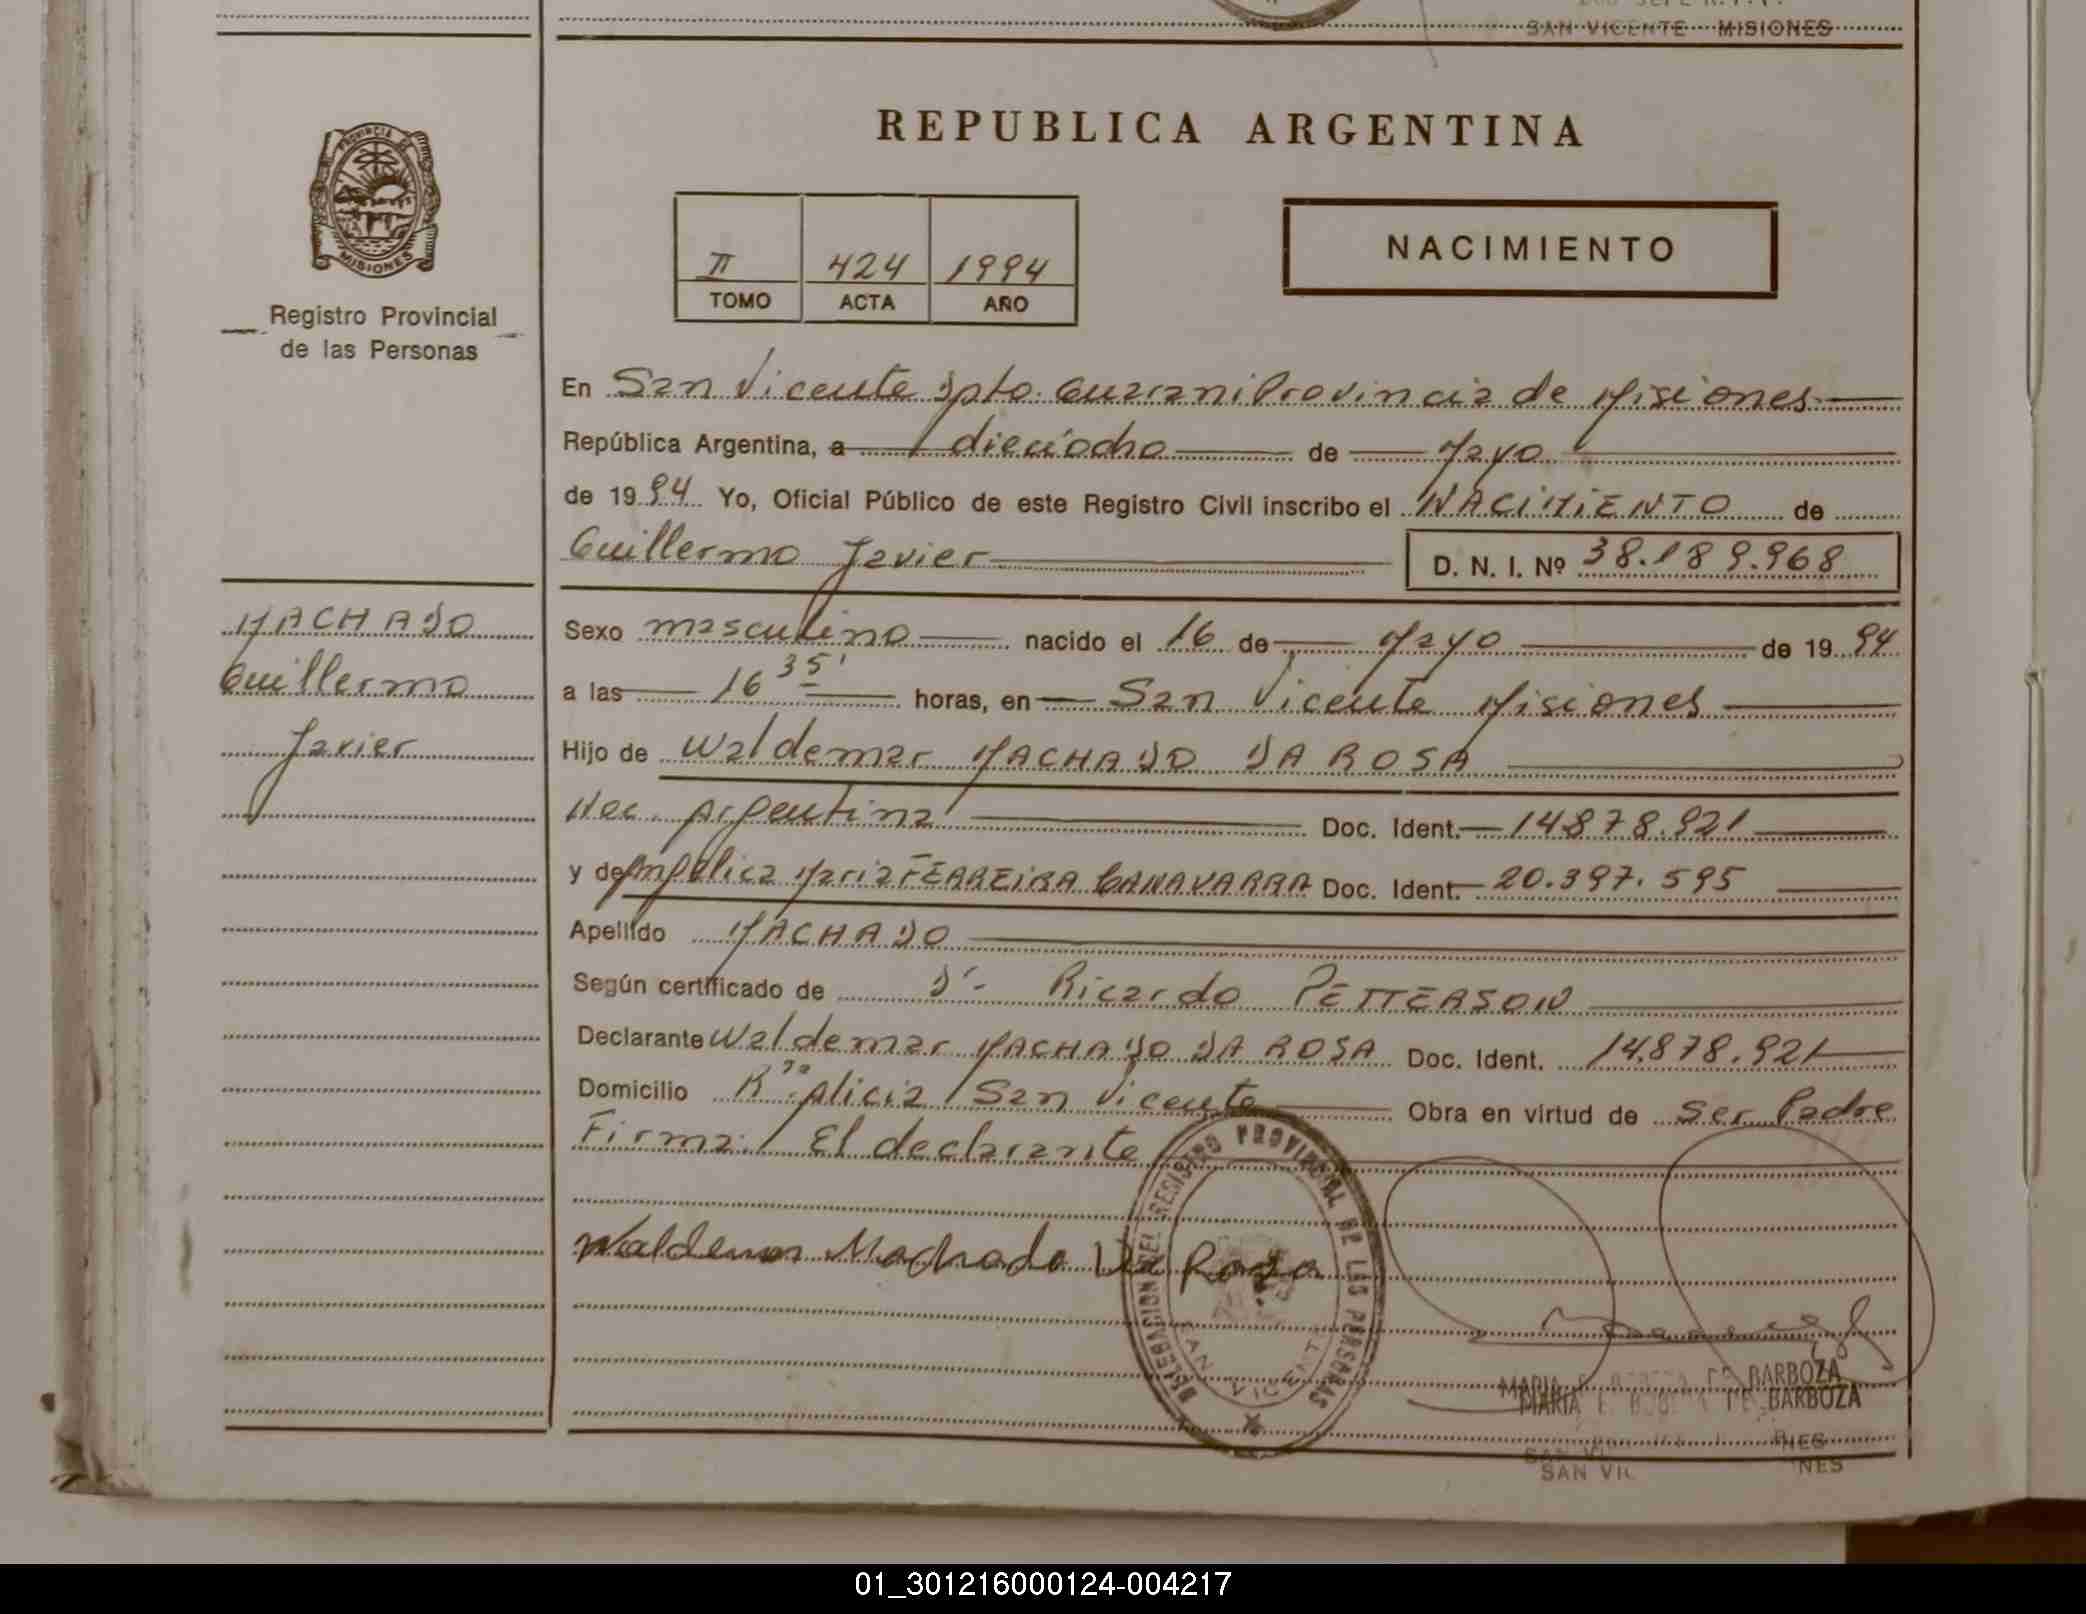 SAN VICENTE MISIONES
PROVINCIA DE MISIONES
Registro Provincial
de las Personas
REPUBLICA ARGENTINA
II 424 1994
TOMO ACTA AÑO
NACIMIENTO
En San Vicente Dpto. Guarani Provincia de Misiones
República Argentina, a dieciocho de Mayo
de 1994 Yo, Oficial Público de este Registro Civil inscribo el NACIMIENTO de
Guillermo Javier D. N. I. Nº 38.189.968
MACHADO
Guillermo
Javier
Sexo masculino nacido el 16 de Mayo de 1994
a las 16 35' horas, en San Vicente Misiones
Hijo de Waldemar MACHADO DA ROSA
Nac. Argentina Doc. Ident. 14.878.921
y de Angelica Maria FERREIRA CANAVARRA Doc. Ident. 20.397.595
Apellido MACHADO
Según certificado de Dr. Ricardo PETTERSON
Declarante Waldemar MACHADO DA ROSA Doc. Ident. 14.878.921
Domicilio Alicia San Vicente Obra en virtud de Ser Padre
Firma: El declarante
Waldemar Machado Da Rosa
DELEGACION DEL REGISTRO PROVINCIAL DE LAS PERSONAS
SAN VICENTE
MARIA E. DE BARBOZA
MARIA E. DE BARBOZA
SAN VIC